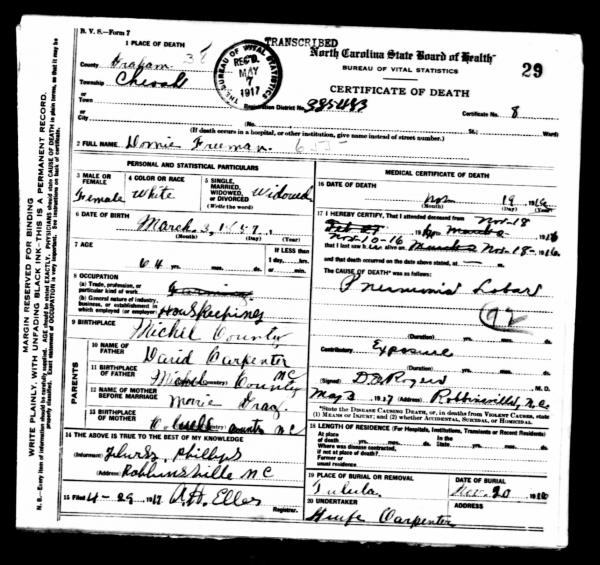 B. V. S.—Form 7
TRANSCRIBED
North Carolina State Board of Health
BUREAU OF VITAL STATISTICS
CERTIFICATE OF DEATH
29
THE BUREAU OF VITAL STATISTICS
REC'D
MAY
7
1917
1 PLACE OF DEATH
County Graham 38
Township Cheoah
or
Town
or
City
Registration District No.
Certificate No. 8
(No. St.; Ward)
(If death occurs in a hospital, or other institution, give name instead of street number.)
2 FULL NAME Freeman
PERSONAL AND STATISTICAL PARTICULARS
3 MALE OR FEMALE
Female
4 COLOR OR RACE
White
5 SINGLE, MARRIED, WIDOWED, OR DIVORCED
(Write the word)
Widowed
6 DATE OF BIRTH
March 3
(Month) (Day) (Year)
7 AGE
64 yrs. mos. ds.
IF LESS than
1 day, hrs.
or min.
8 OCCUPATION
(a) Trade, profession, or
particular kind of work
(b) General nature of industry,
business, or establishment in
which employed (or employer)
Housekeeping
9 BIRTHPLACE
Michel County
PARENTS
10 NAME OF FATHER
David Carpenter
11 BIRTHPLACE OF FATHER
County NC
12 NAME OF MOTHER BEFORE MARRIAGE
13 BIRTHPLACE OF MOTHER
NC
14 THE ABOVE IS TRUE TO THE BEST OF MY KNOWLEDGE
(Informant) Phillips
(Address) Robbinsville NC
15 Filed 4-29 1917
Registrar.
MEDICAL CERTIFICATE OF DEATH
16 DATE OF DEATH
Nov 19 1916
(Month) (Day)
17 I HEREBY CERTIFY, That I attended deceased from Nov-18
Nov-10-16
that I last saw h alive on Nov-18-1916
and that death occurred on the date above stated, at m.
The CAUSE OF DEATH* was as follows:
Pneumonia Lobar
92
(Duration) yrs. mos. ds.
Contributory Exposure
(Duration) yrs. mos. ds.
(Signed) M. D.
May 2 1917 (Address) Robbinsville, N.C.
*State the DISEASE CAUSING DEATH, or, in deaths from VIOLENT CAUSES, state
(1) MEANS OF INJURY; and (2) whether ACCIDENTAL, SUICIDAL, OR HOMICIDAL.
18 LENGTH OF RESIDENCE (For Hospitals, Institutions, Transients or Recent Residents)
At place of death yrs. mos. ds.
In the State yrs. mos. ds.
Where was disease contracted,
if not at place of death?
Former or
usual residence
19 PLACE OF BURIAL OR REMOVAL
DATE OF BURIAL
Nov. 20 1916
20 UNDERTAKER
Carpenter
ADDRESS
MARGIN RESERVED FOR BINDING
WRITE PLAINLY, WITH UNFADING BLACK INK—THIS IS A PERMANENT RECORD.
N. B.—Every item of information should be carefully supplied. AGE should be stated EXACTLY. PHYSICIANS should state CAUSE OF DEATH in plain terms, so that it may be
properly classified. Exact statement of OCCUPATION is very important. See instructions on back of certificate.